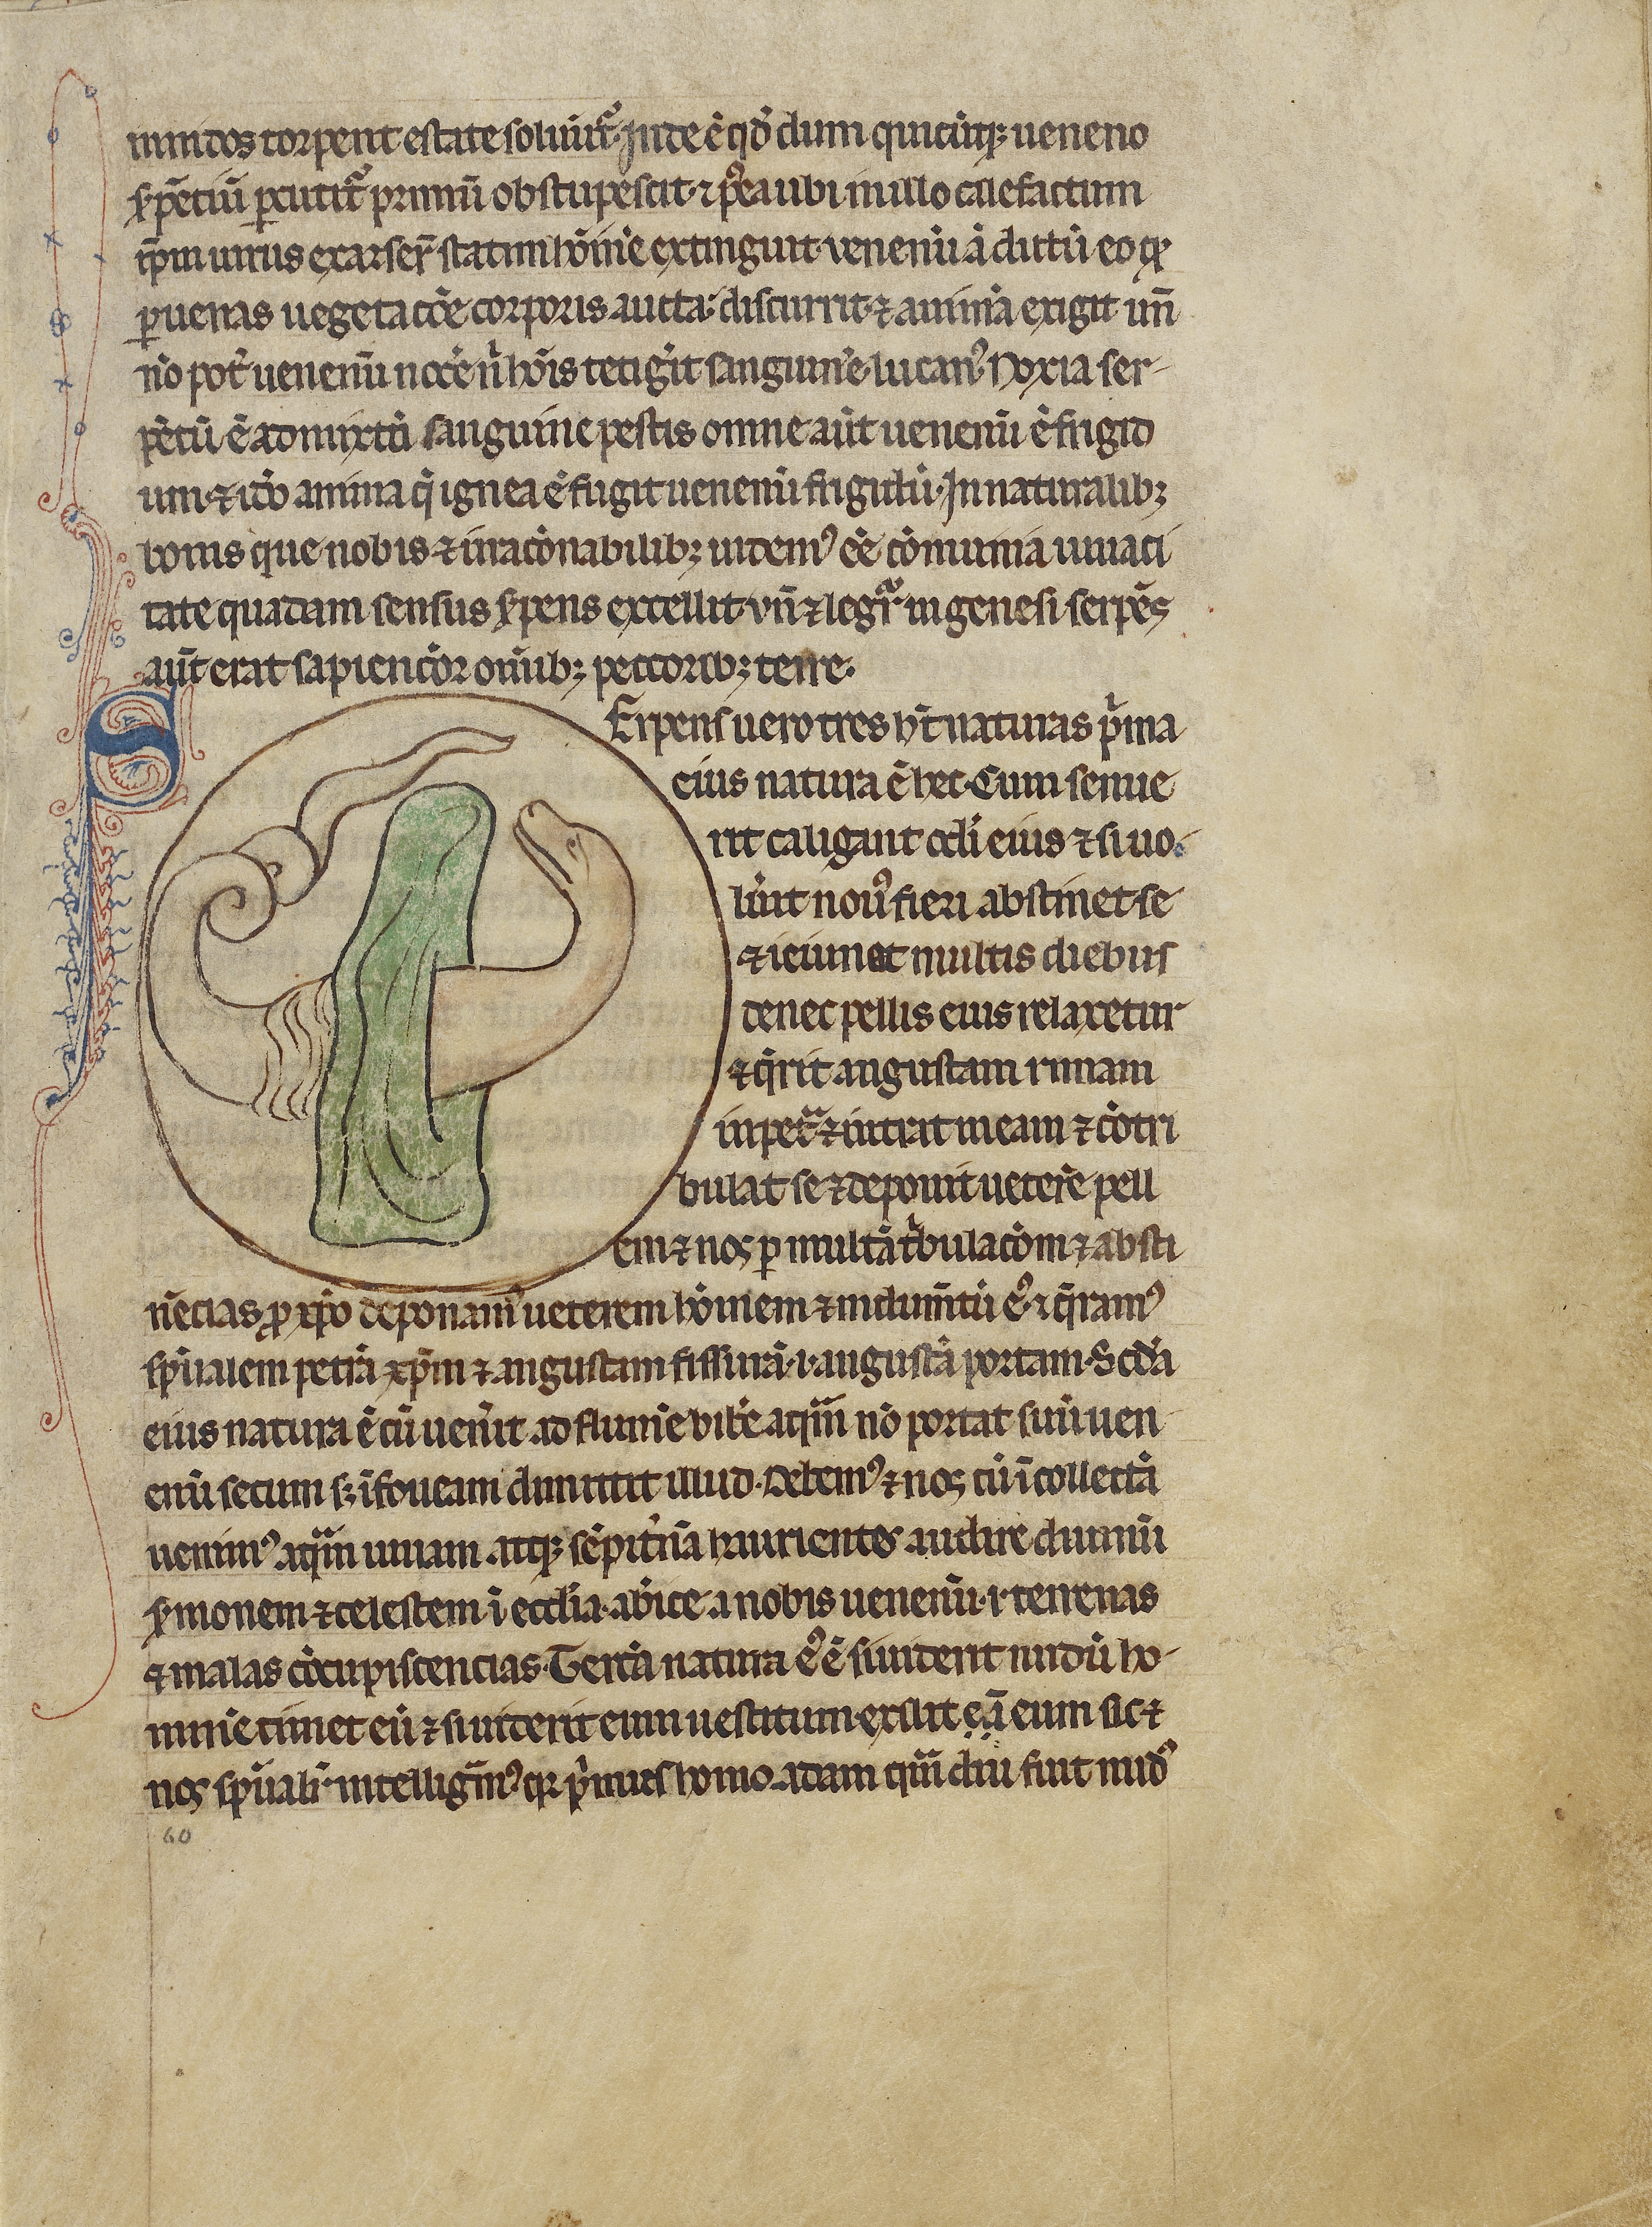 nundos torpent estate soluūt᷑. Inde ē qd̕ dum quicūq; ueneno
s̕pētiū ꝑcutit᷑ primū obstupescit· ⁊ p᷒ea ubi in illo calefactum
ip̄m uirus exarser̄ statim hōīnē extinguit· venenū ā dictū eo ꝙ
ꝑ uenas uegetac̄oe corporis aucta discurrit· ⁊ animā exigit un̄
nō pot̕ uenenū noce̕ n̕ hōis tetig̕it sanguinē· lucan᷒ Noxia ser-
pētū ē admixto sanguine pestis omne aūt uenenū ē frigid
um· ⁊ ido anima q̕ ignea ē fugit uenenū frigidū· In naturalib;
bonis que nobis ⁊ irrac̄onabilib; uidem᷒ eē cōmunia uiuaci
tate quadam sensus s̕pens excellit· vn̄ ⁊ legit᷑ in genesi serpēs
aūt erat sapienc̄or om̄ib; peccorib; terre·
S Erpens uero tres h̄t naturas p̕ma
eius natura ē hec· Cum senue
rit caligant oc̄li eius ⁊ si uo
lūit nou᷒ fieri abstinet se
⁊ ieiunat multis diebus
donec pellis eius relaxetur
⁊ q̕rit angustam rimam
in pet᷑ ⁊ intrat in eam ⁊ cōtri
bulat se ⁊ deponit ueterē pell
em ⁊ nos ꝑ multā t̕bulac̄om ⁊ absti
nēcias ꝓ xp̄o deponam᷒ ueterem hōinem ⁊ indum̄tū ei᷒ ⁊ q̄ram᷒
sp̄ualem petrā xp̄m ⁊ angustam fissurā ·i· angustā portam· Scd̄a
eius natura ē cū uen̕it ad flumē bibe̕ aquam nō portat suū uen
enū secum s; ī foueam dimittit illud· Debem᷒ ⁊ nos cū ī collectā
uenim᷒ aquam uiuam atq; sēpit̕nā haurientes audire diuinū
s̕monem ⁊ celestem ī ecclia· abice̕ a nobis uenenū ·i· terrenas
⁊ malas cōcupiscencias· Tercia natura ei᷒ ē si uiderit nudū ho-
minē timet eū ⁊ si uiderit eum uestitum exilit eā eum sic ⁊
nos sp̄ualit᷑ intelligim᷒ q; p̕mus homo adam quā diu fuit nud᷒
60